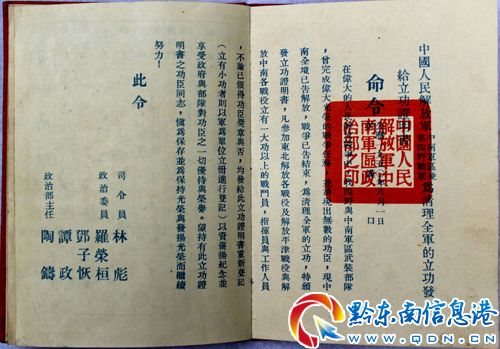 中國人民解放軍
中南軍區
第四野戰軍
為清理全軍的立功發
給立功證
命令
月一日
在偉大的人民
四野與中南軍區武裝部隊
,曾完成偉大光榮的戰爭任務,並湧現出無數的功臣,現中
南全境已告解放,戰爭已告結束,為清理全軍的立功,特頒
發立功證明書,凡參加東北解放各戰役及解放平津戰役與解
放中南各戰役立有一大功以上的戰鬥員,指揮員與工作人員
中國人民
解放軍中
南軍區政
治部之印
,不論已領得功臣獎章與否,均發給此立功證明書重新登記
(立有小功者則以軍為單位立冊進行登記)以資表揚紀念並
享受政府與部隊對功臣之一切優待與榮譽。望持有此立功證
明書之功臣同志,慎為保存並為保持光榮與發揚光榮而繼續
努力!
此令
司令員 林彪
政治委員 羅榮桓
鄧子恢
譚政
政治部主任 陶鑄
黔东南信息港
WWW.QDN.CN